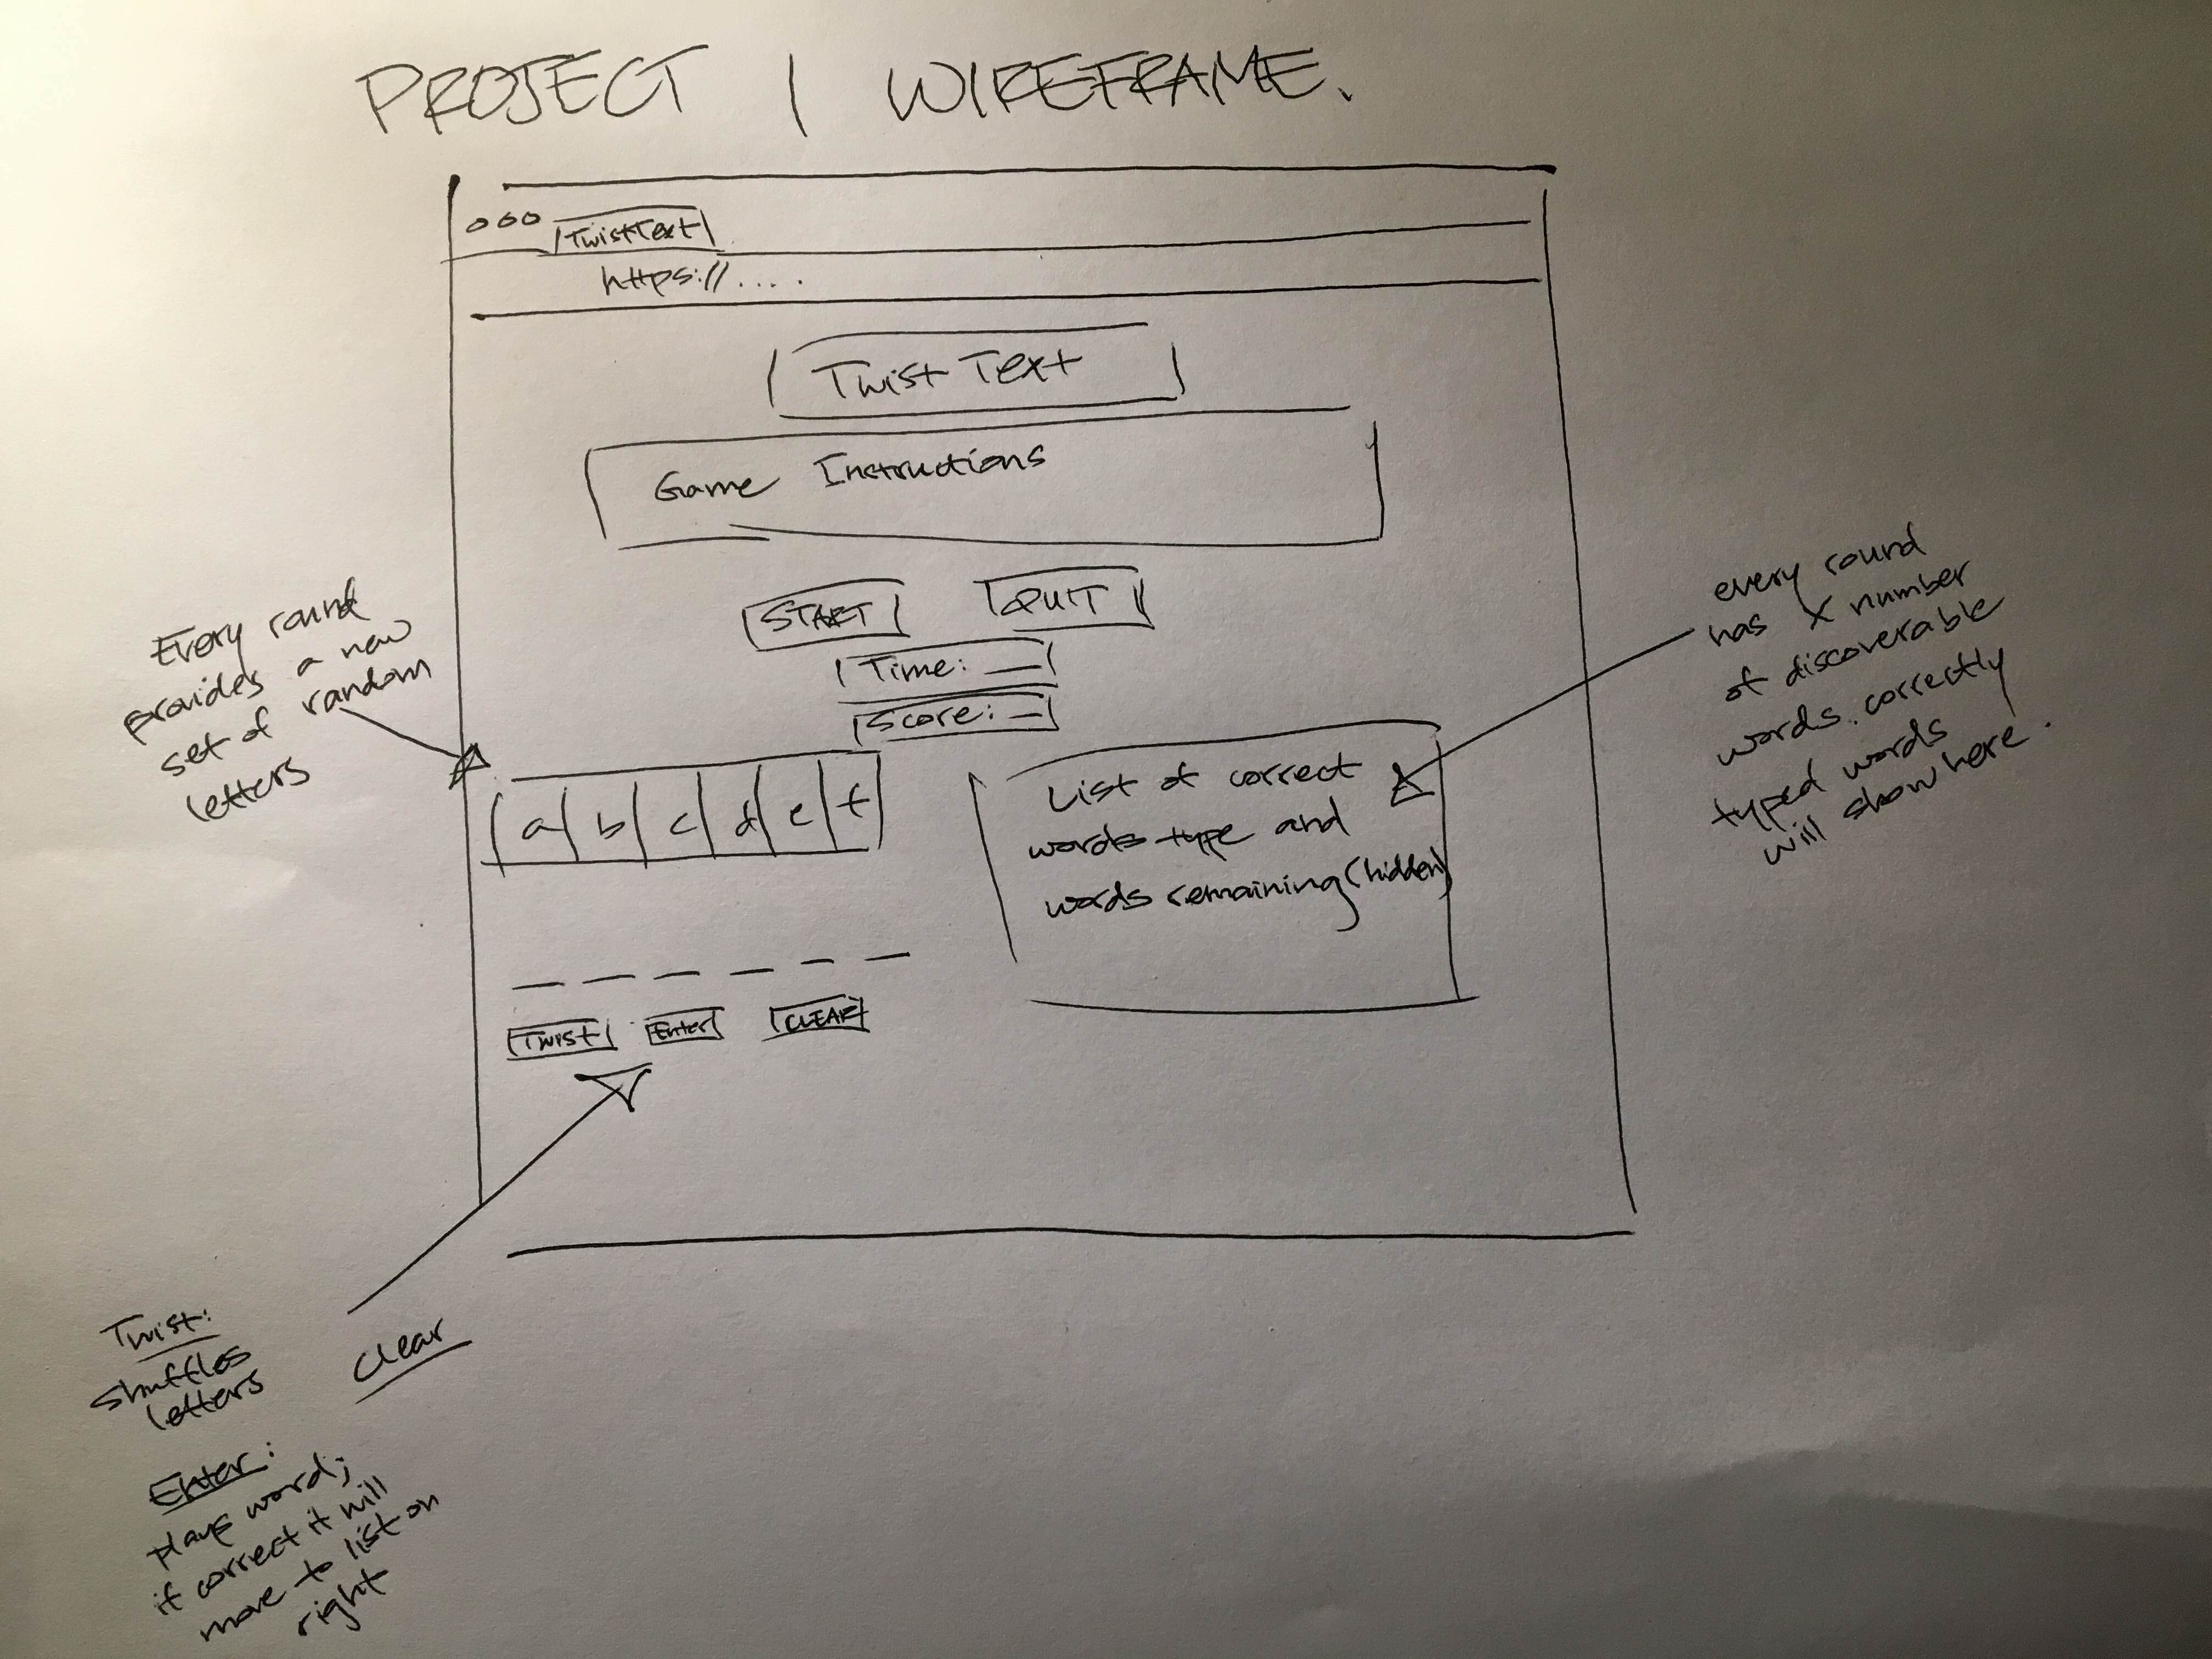 PROJECT 1 WIREFRAME.
TwistText
https://....
Twist Text
Game Instructions
START
QUIT
Time: _
Score: _
Every round
provides a new
set of random
letters
a b c d e f
List of correct
words type and
words remaining (hidden)
every round
has X number
of discoverable
words. correctly
typed words
will show here.
_ _ _ _ _ _
Twist
Enter
CLEAR
Twist:
shuffles
letters
clear
Enter:
plays word;
if correct it will
move to list on
right